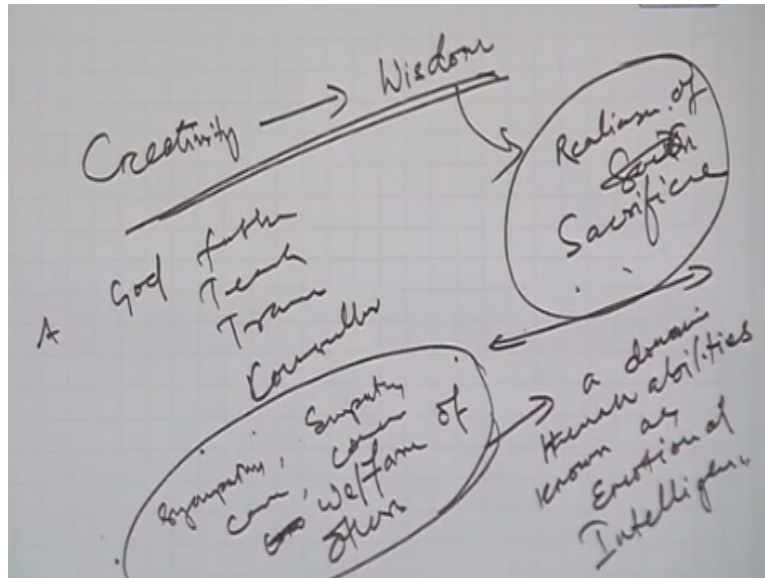 Creativity → Wisdom
Realism of
Sacrifice
A God father
Teach
Counsellor
Sympathy, Empathy
care, concern
welfare of
others
a domain
Human abilities
known as
Emotional
Intelligen..